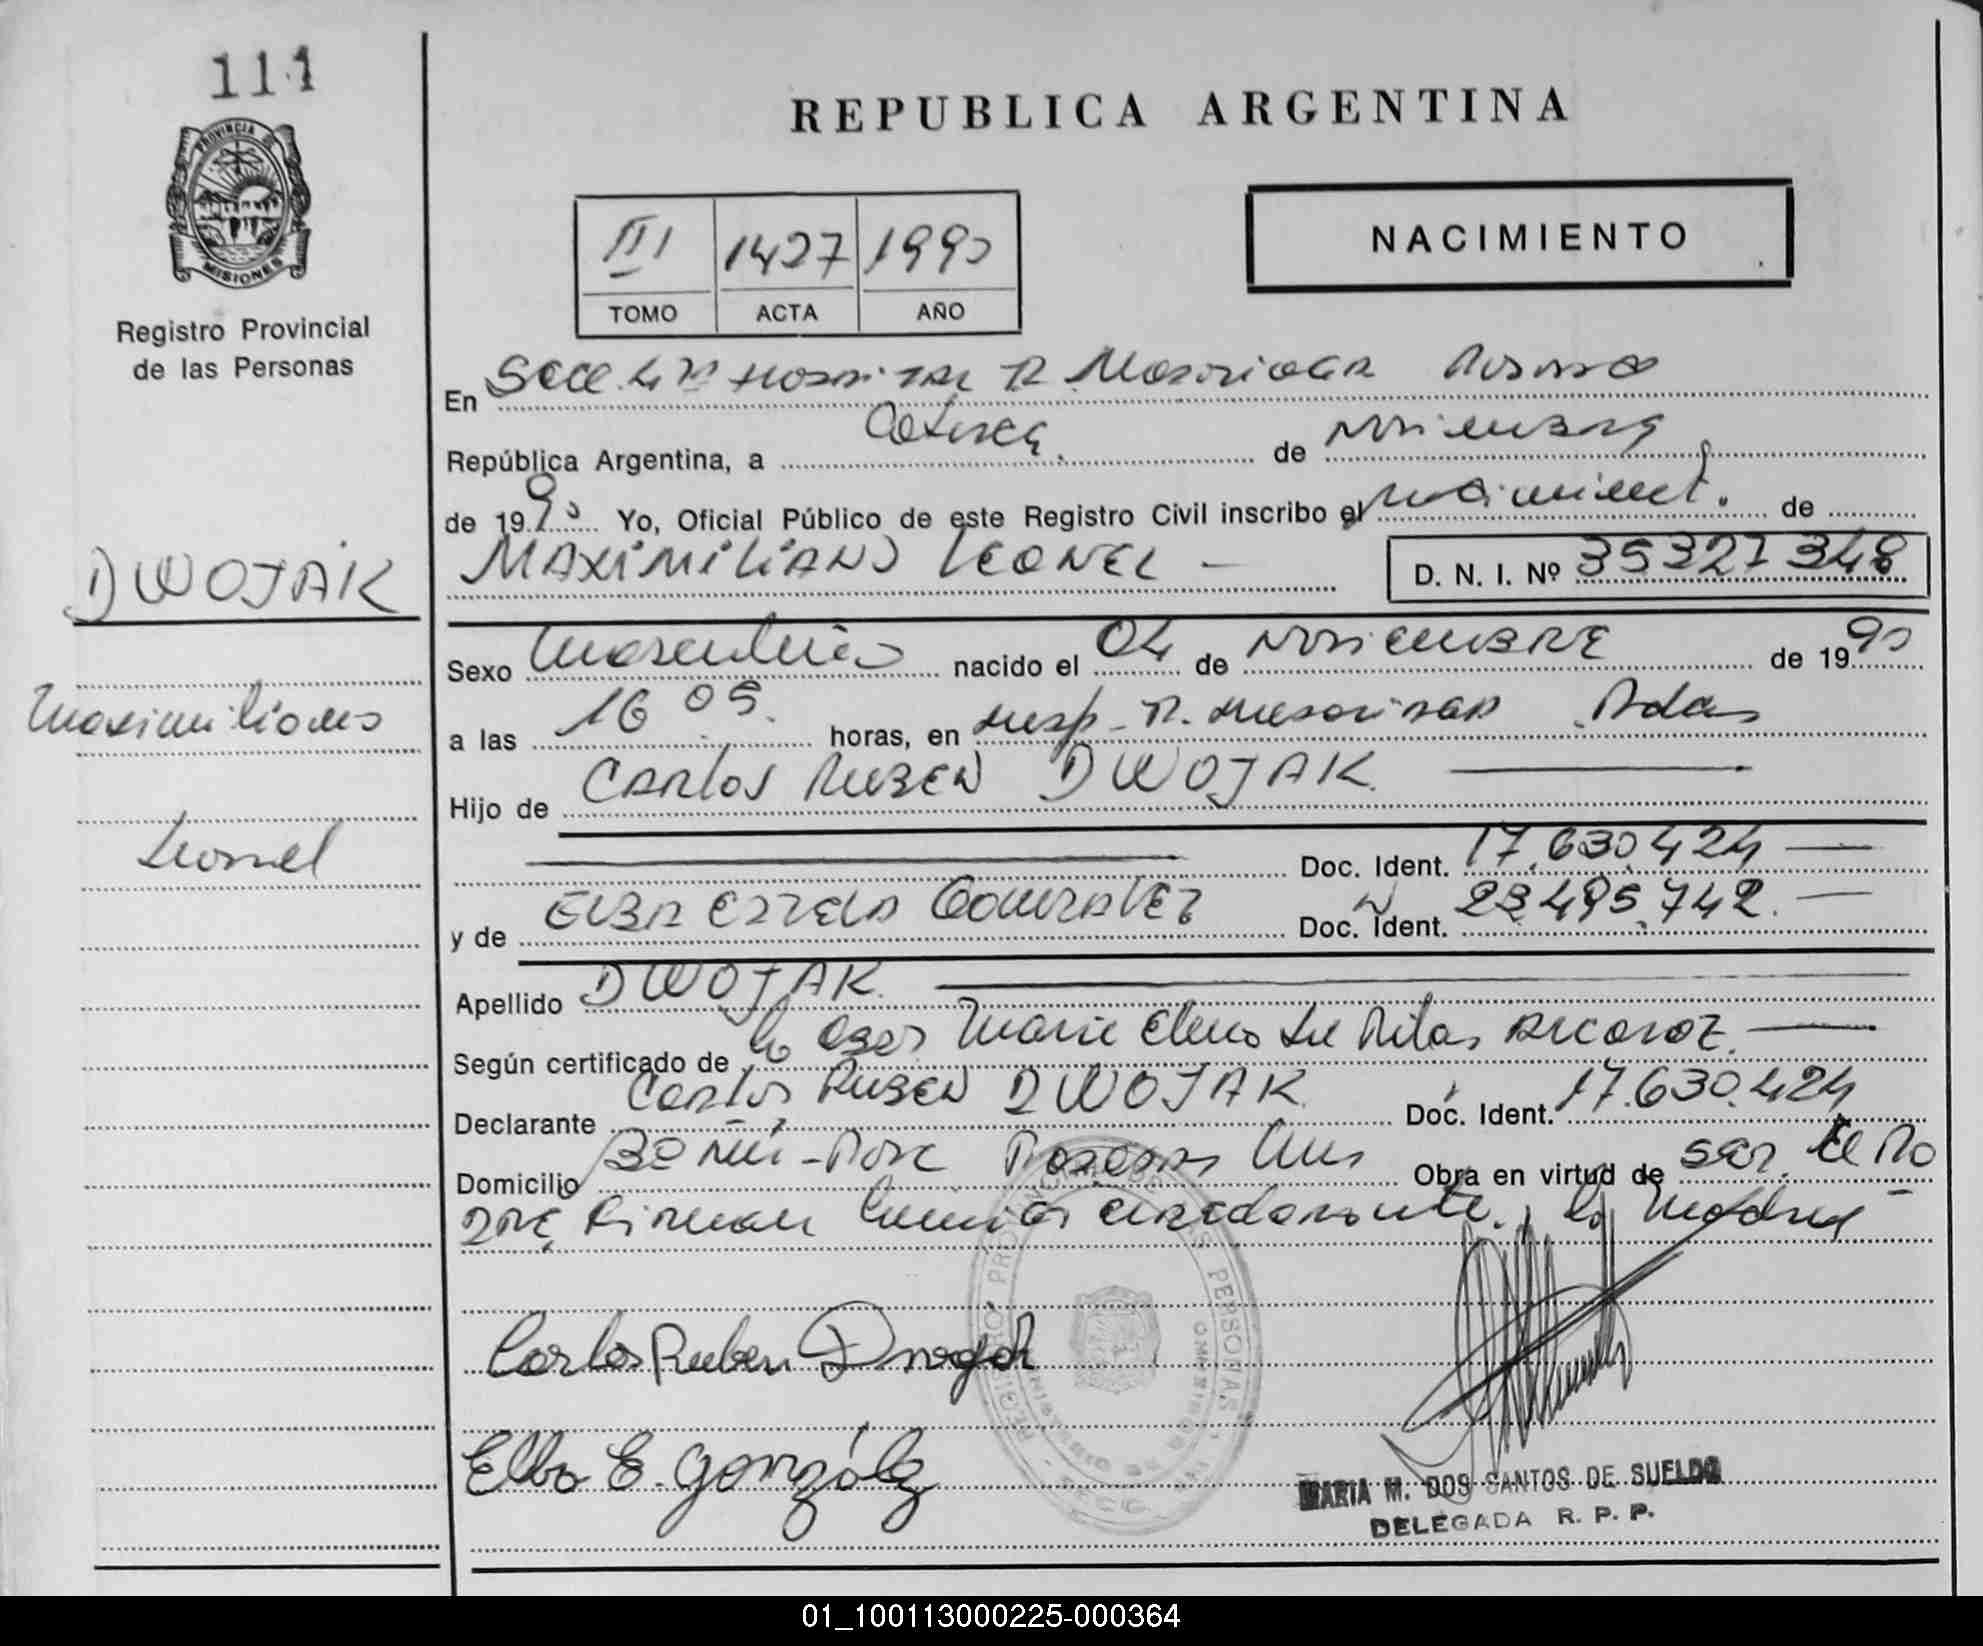 111
PROVINCIA DE
MISIONES
Registro Provincial
de las Personas
DWOJAK
Maximiliano
Leonel
REPUBLICA ARGENTINA
III 1427 1990
TOMO ACTA AÑO
NACIMIENTO
En Secc. 4ta Hospital R. Madariaga Posadas
República Argentina, a catorce de Noviembre
de 1990 Yo, Oficial Público de este Registro Civil inscribo el nacimiento de
MAXIMILIANO LEONEL — D. N. I. Nº 35327348
Sexo masculino nacido el 04 de NOVIEMBRE de 1990
a las 16 05 horas, en Hosp. R. Madariaga Pdas
Hijo de CARLOS RUBEN DWOJAK
Doc. Ident. 17.630.424
y de ELBA ESTELA GONZALEZ Doc. Ident. 23.495.742.
Apellido DWOJAK
Según certificado de la Maria Elena de
Declarante Carlos RUBEN DWOJAK Doc. Ident. 17.630.424
Domicilio Posadas Mns Obra en virtud de ser el
padre Firman la madre
Carlos Ruben Dwojak
Elba E. González
MARIA M. DOS SANTOS DE SUELDO
DELEGADA R. P. P.
REGISTRO PROVINCIAL DE LAS PERSONAS
01_100113000225-000364